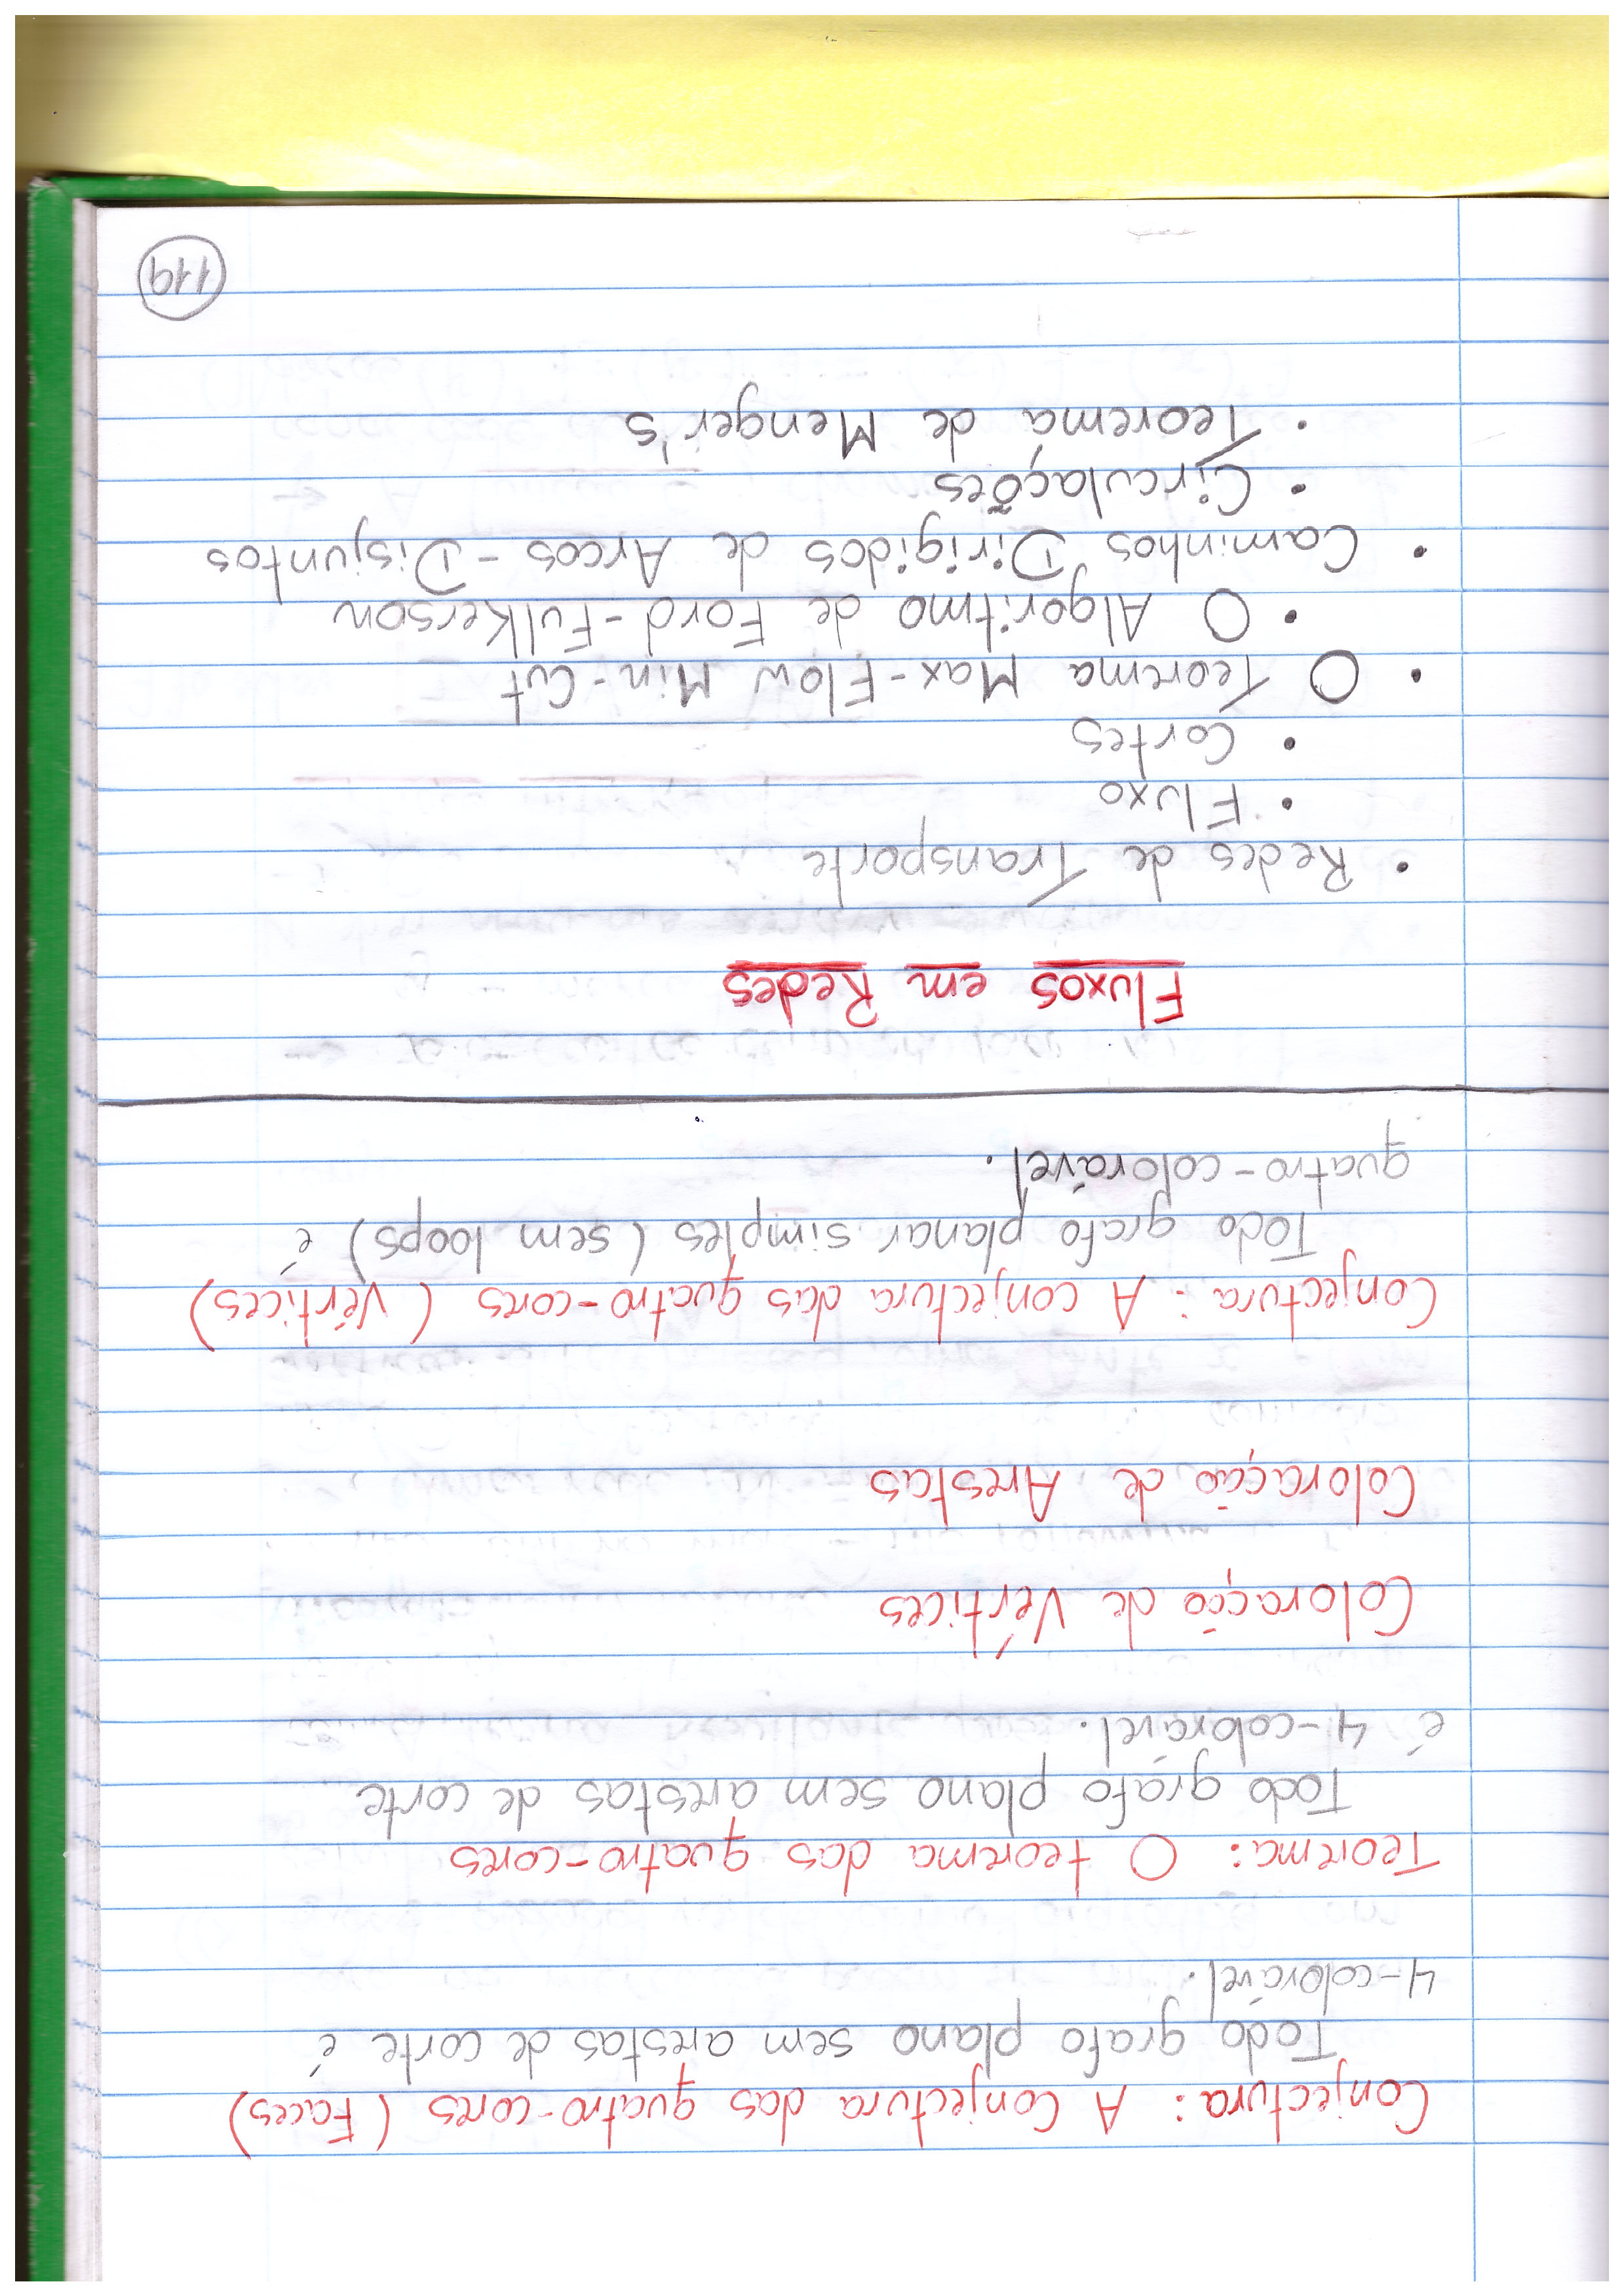 Conjectura: A Conjectura das quatro-cores (Faces)
Todo grafo plano sem arestas de corte é
4-colorável.
Teorema: O teorema das quatro-cores
Todo grafo plano sem arestas de corte
é 4-colorável.
Coloração de Vértices
Coloração de Arestas
Conjectura: A conjectura das quatro-cores (Vértices)
Todo grafo planar simples (sem loops) é
quatro-colorável.
Fluxos em Redes
• Redes de Transporte
• Fluxo
• Cortes
• O Teorema Max-Flow Min-Cut
• O Algoritmo de Ford-Fulkerson
• Caminhos Dirigidos de Arcos-Disjuntos
• Circulações
• Teorema de Menger's
119